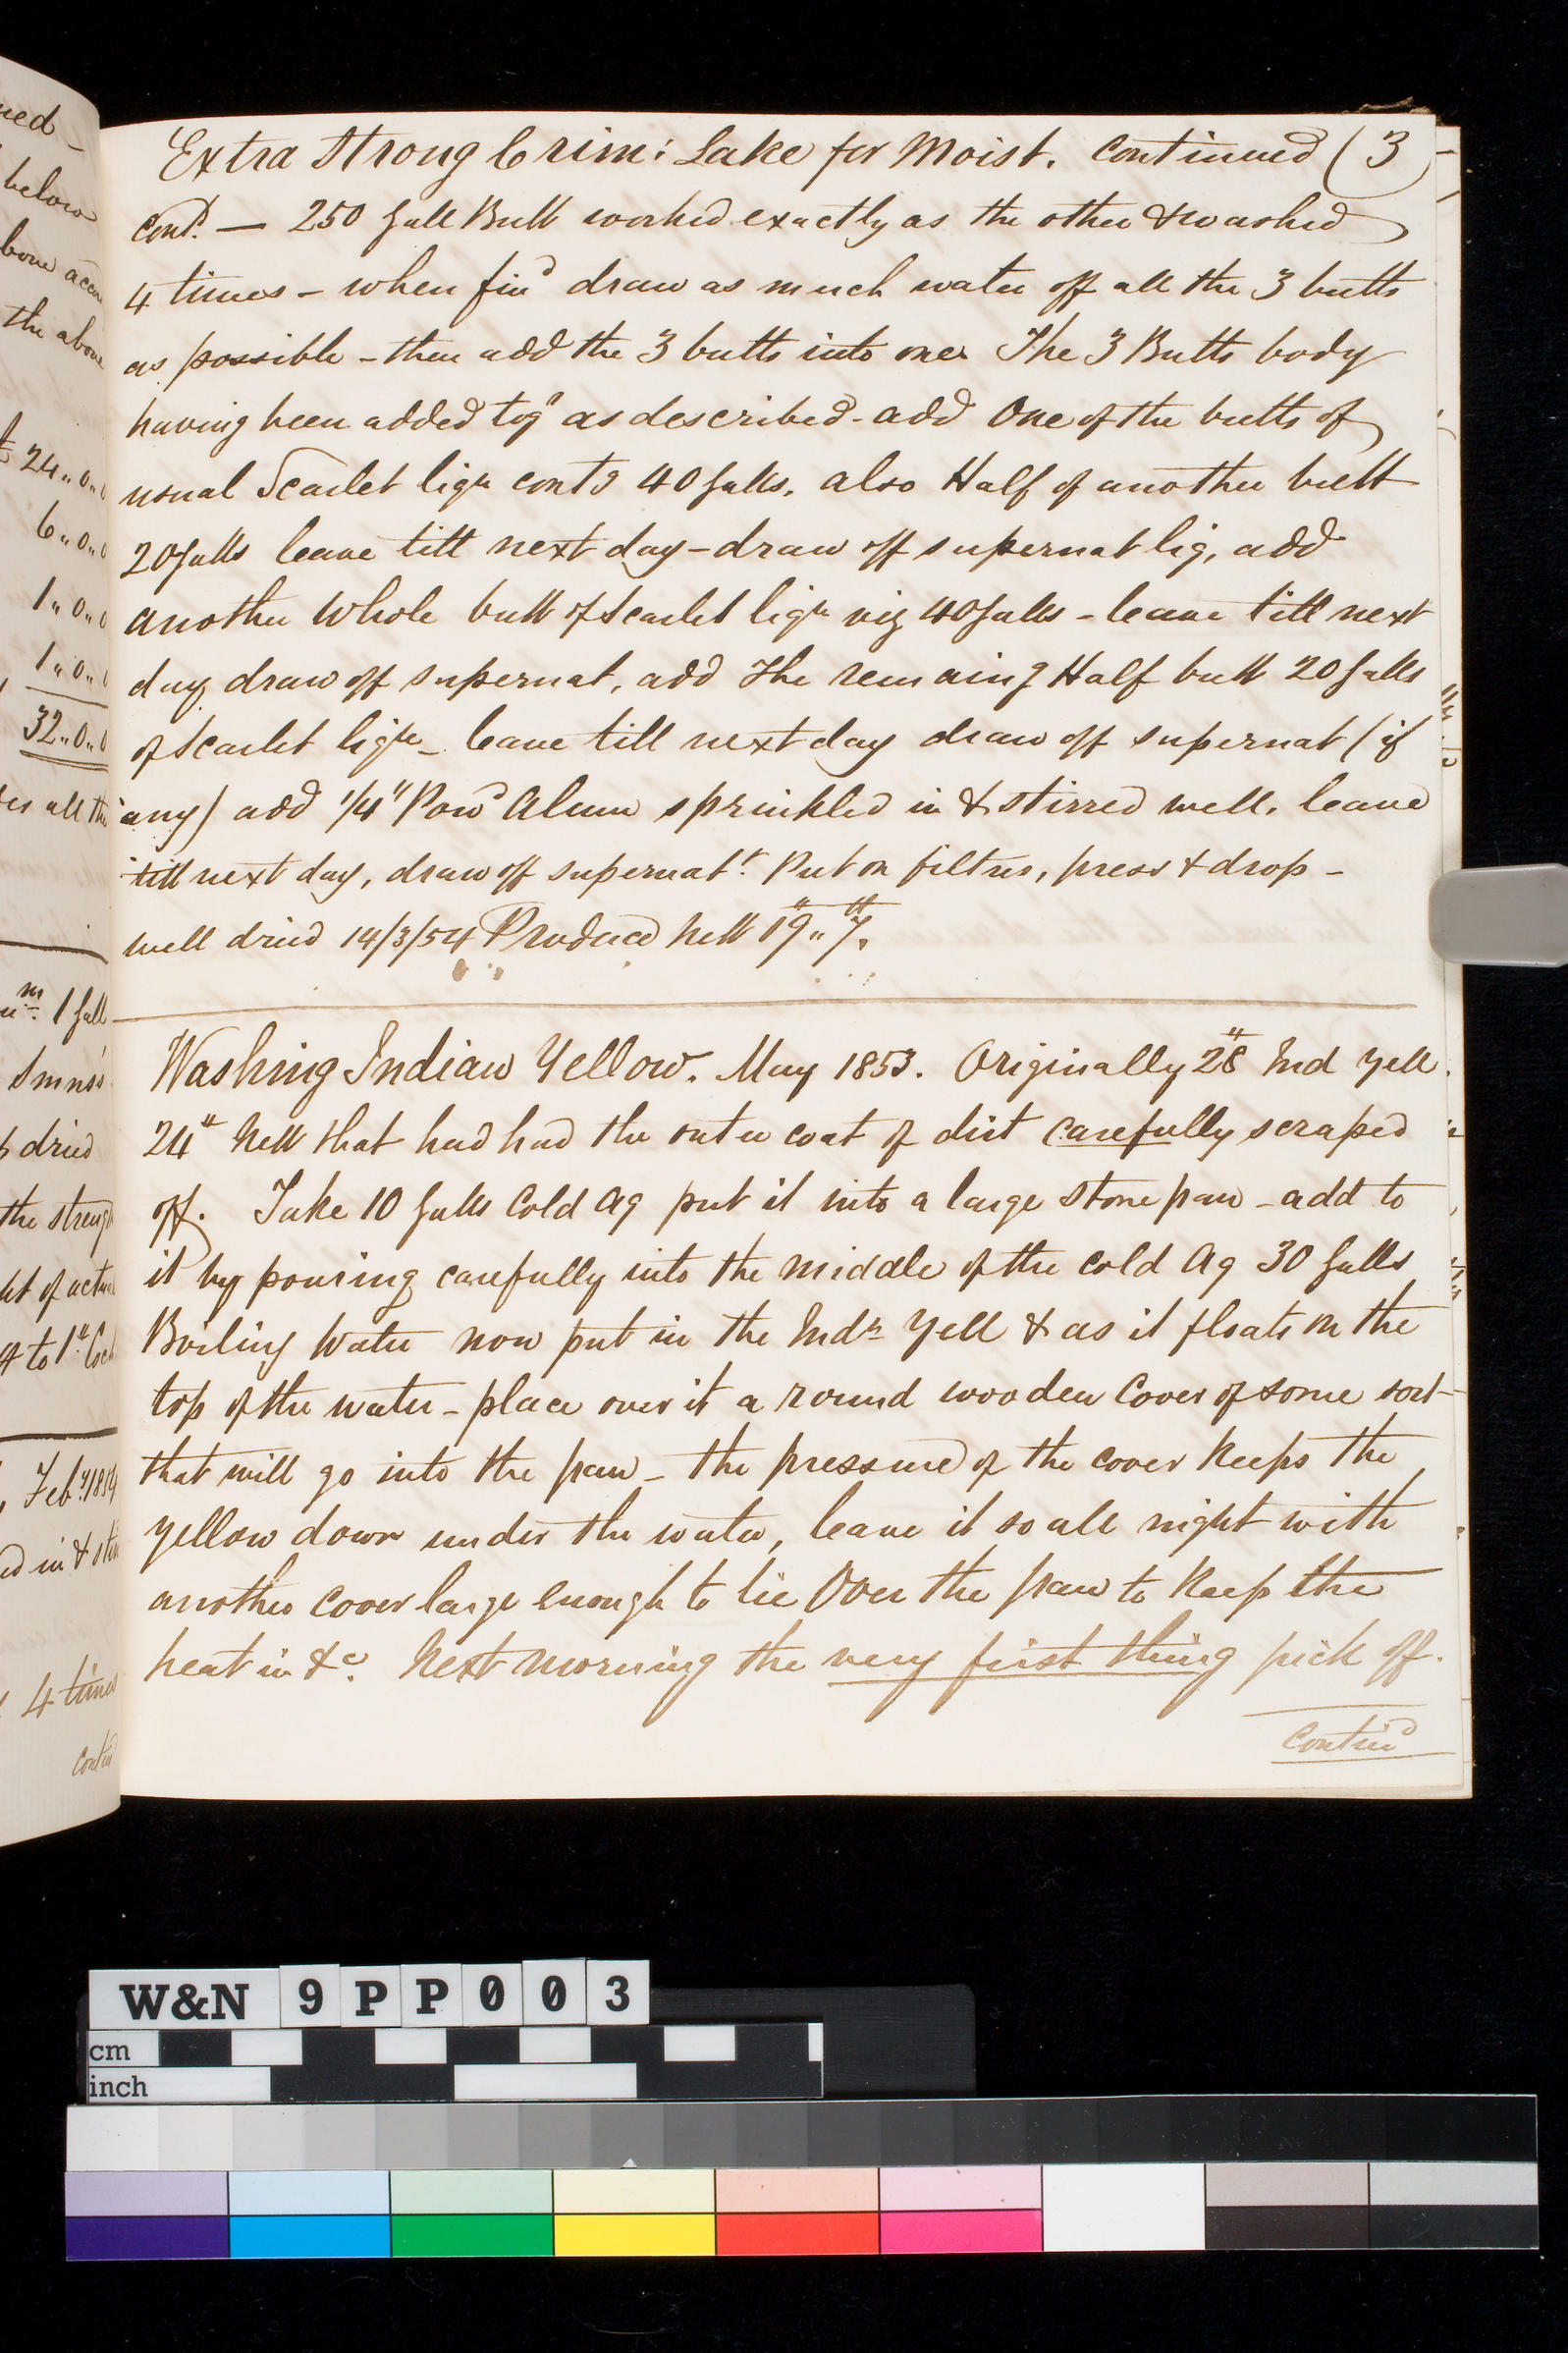 Extra Strong Crim: Lake for Moist. Continued (3
Contd. — 250 Gall Butt worked exactly as the other & washed
4 times - when find draw as much water off all the 3 butts
as possible - then add the 3 butts into one. The 3 Butts body
having been added togr as described - add One of the butts of
usual Scarlet liqr contg 40 Galls. also Half of another butt
20 Galls leave till next day - draw off supernat liq, add
another Whole butt of Scarlet liqr viz 40 Galls - leave till next
day draw off supernat, add The remaing Half butt 20 Galls
of Scarlet liqr - leave till next day draw off supernat (if
any) add 1/4 " Powd Alum sprinkled in & stirred well, leave
till next day, draw off supernatt. Put on filters, press & drop -
well dried 14/3/54 Produced Nett 19 .. 7.
Washing Indian Yellow. May 1853. Originally 28 Ind Yell.
24 Nett that had had the outer coat of dirt carefully scraped
off. Take 10 Galls Cold Aq put it into a large Stone pan - add to
it by pouring carefully into the middle of the Cold Aq 30 Galls
Boiling Water now put in the Indn Yell & as it floats on the
top of the water - place over it a round wooden Cover of some sort
that will go into the pan - the pressure of the cover keeps the
yellow down under the water, leave it so all night with
another cover large enough to lie Over the pan to keep the
heat in &c. Next morning the very first thing pick off.
Contind
ned
below
the above
24..0..0
6..0..0
1..0..0
1..0..0
32..0..0
1 Gall
dried
Feby 1854
4 times
W&N 9PP003
cm
inch